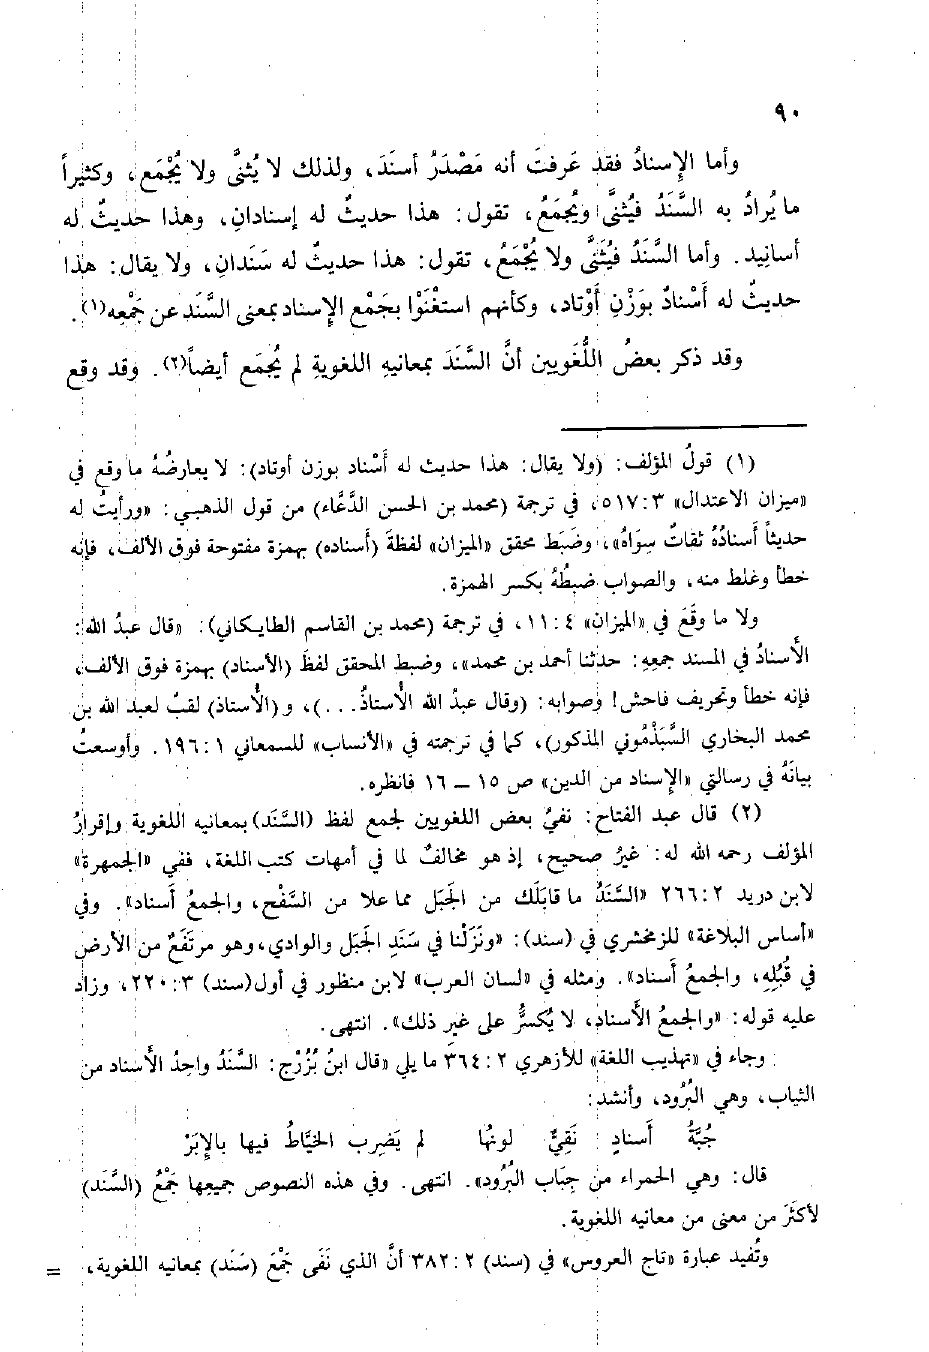 ٩٠
وأما الإسنادُ فقد عَرفتَ أنه مَصْدَرُ أسنَدَ، ولذلك لا يُثنَّى ولا يُجْمَع، وكثيراً
ما يُرادُ به السَّنَدُ فيُثنَّى ويُجمَعُ، تقول: هذا حديثٌ له إسنادانِ، وهذا حديثٌ له
أسانِيد. وأما السَّنَدُ فيُثَنَّى ولا يُجْمَعُ، تقول: هذا حديثٌ له سَنَدانِ، ولا يقال: هذا
حديثٌ له أَسْنادٌ بوَزْنِ أَوْتاد، وكأنهم استغْنَوْا بجَمْع الإسناد بمعنى السَّنَد عن جَمْعِه(١).
وقد ذكر بعضُ اللُّغَويين أنَّ السَّنَدَ بمعانيهِ اللغويةِ لم يُجمَع أيضاً(٢). وقد وقع
(١) قولُ المؤلف: (ولا يقال: هذا حديث له أَسْناد بوزن أوتاد): لا يعارضُهُ ما وقع في
«ميزان الاعتدال» ٣:‏٥١٧، في ترجمة (محمد بن الحسن الدَّعَّاء) من قول الذهبـي: «ورأيتُ له
حديثاً أَسنادُهُ ثقاتٌ سِوَاهُ»، وضَبَط محقق «الميزان» لفظةَ (أَسناده) بهمزة مفتوحة فوق الألف، فإنه
خطأ وغلط منه، والصواب ضبطُهُ بكسر الهمزة.
ولا ما وقَعَ في «الميزان» ٤:‏١١، في ترجمة (محمد بن القاسم الطايكاني): «قال عبدُ الله:
الأَسنادُ في المسند جمعِهِ: حدثنا أحمد بن محمد»، وضبط المحقق لفظَ (الأسناد) بهمزة فوق الألف،
فإنه خطأ وتحريف فاحش! وصوابه: (وقال عبدُ الله الأُستاذُ...)، و(الأُستاذ) لقبٌ لعبد الله بن
محمد البخاري السَّبَذْمُوني المذكور)، كما في ترجمته في «الأنساب» للسمعاني ١:‏١٩٦. وأوسعتُ
بيانَهُ في رسالتي «الإسناد من الدين» ص ١٥ – ١٦ فانظره.
(٢) قال عبد الفتاح: نفيُ بعض اللغويين لجمع لفظ (السَّنَد) بمعانيه اللغوية وإقرارُ
المؤلف رحمه الله له: غيرُ صحيح، إذ هو مخالفٌ لما في أمهات كتب اللغة، ففي «الجمهرة»
لابن دريد ٢:‏٢٦٦ «السَّنَدُ ما قابَلَك من الجَبَل مما علا من السَّفْح، والجمعُ أَسناد». وفي
«أساس البلاغة» للزمخشري في (سند): «ونَزَلْنا في سَنَدِ الجَبَل والوادي، وهو مرتَفَعٌ من الأرض
في قُبُلِهِ، والجمعُ أَسناد». ومثله في «لسان العرب» لابن منظور في أول (سند) ٣:‏٢٢٠، وزاد
عليه قوله: «والجمعُ الأَسناد، لا يُكسَّرُ على غيرِ ذلك». انتهى.
وجاء في «تهذيب اللغة» للأزهري ٢:‏٣٦٤ ما يلي «قال ابنُ بُزُرْج: السَّنَدُ واحِدُ الأَسناد من
الثياب، وهي البُرُود، وأنشد:
جُبَّةُ أَسنادٍ نَقِيٌّ لونُها لم يَضرِب الخيَّاطُ فيها بالإِبَرْ
قال: وهي الحمراء من جِبَاب البُرُود». انتهى. وفي هذه النصوص جميعِها جَمْعُ (السَّنَد)
لأكثَرَ من معنى من معانيه اللغوية.
وتُفيد عبارة «تاج العروس» في (سند) ٢:‏٣٨٢ أنَّ الذي نَفَى جَمْعَ (سَنَد) بمعانيه اللغوية، =